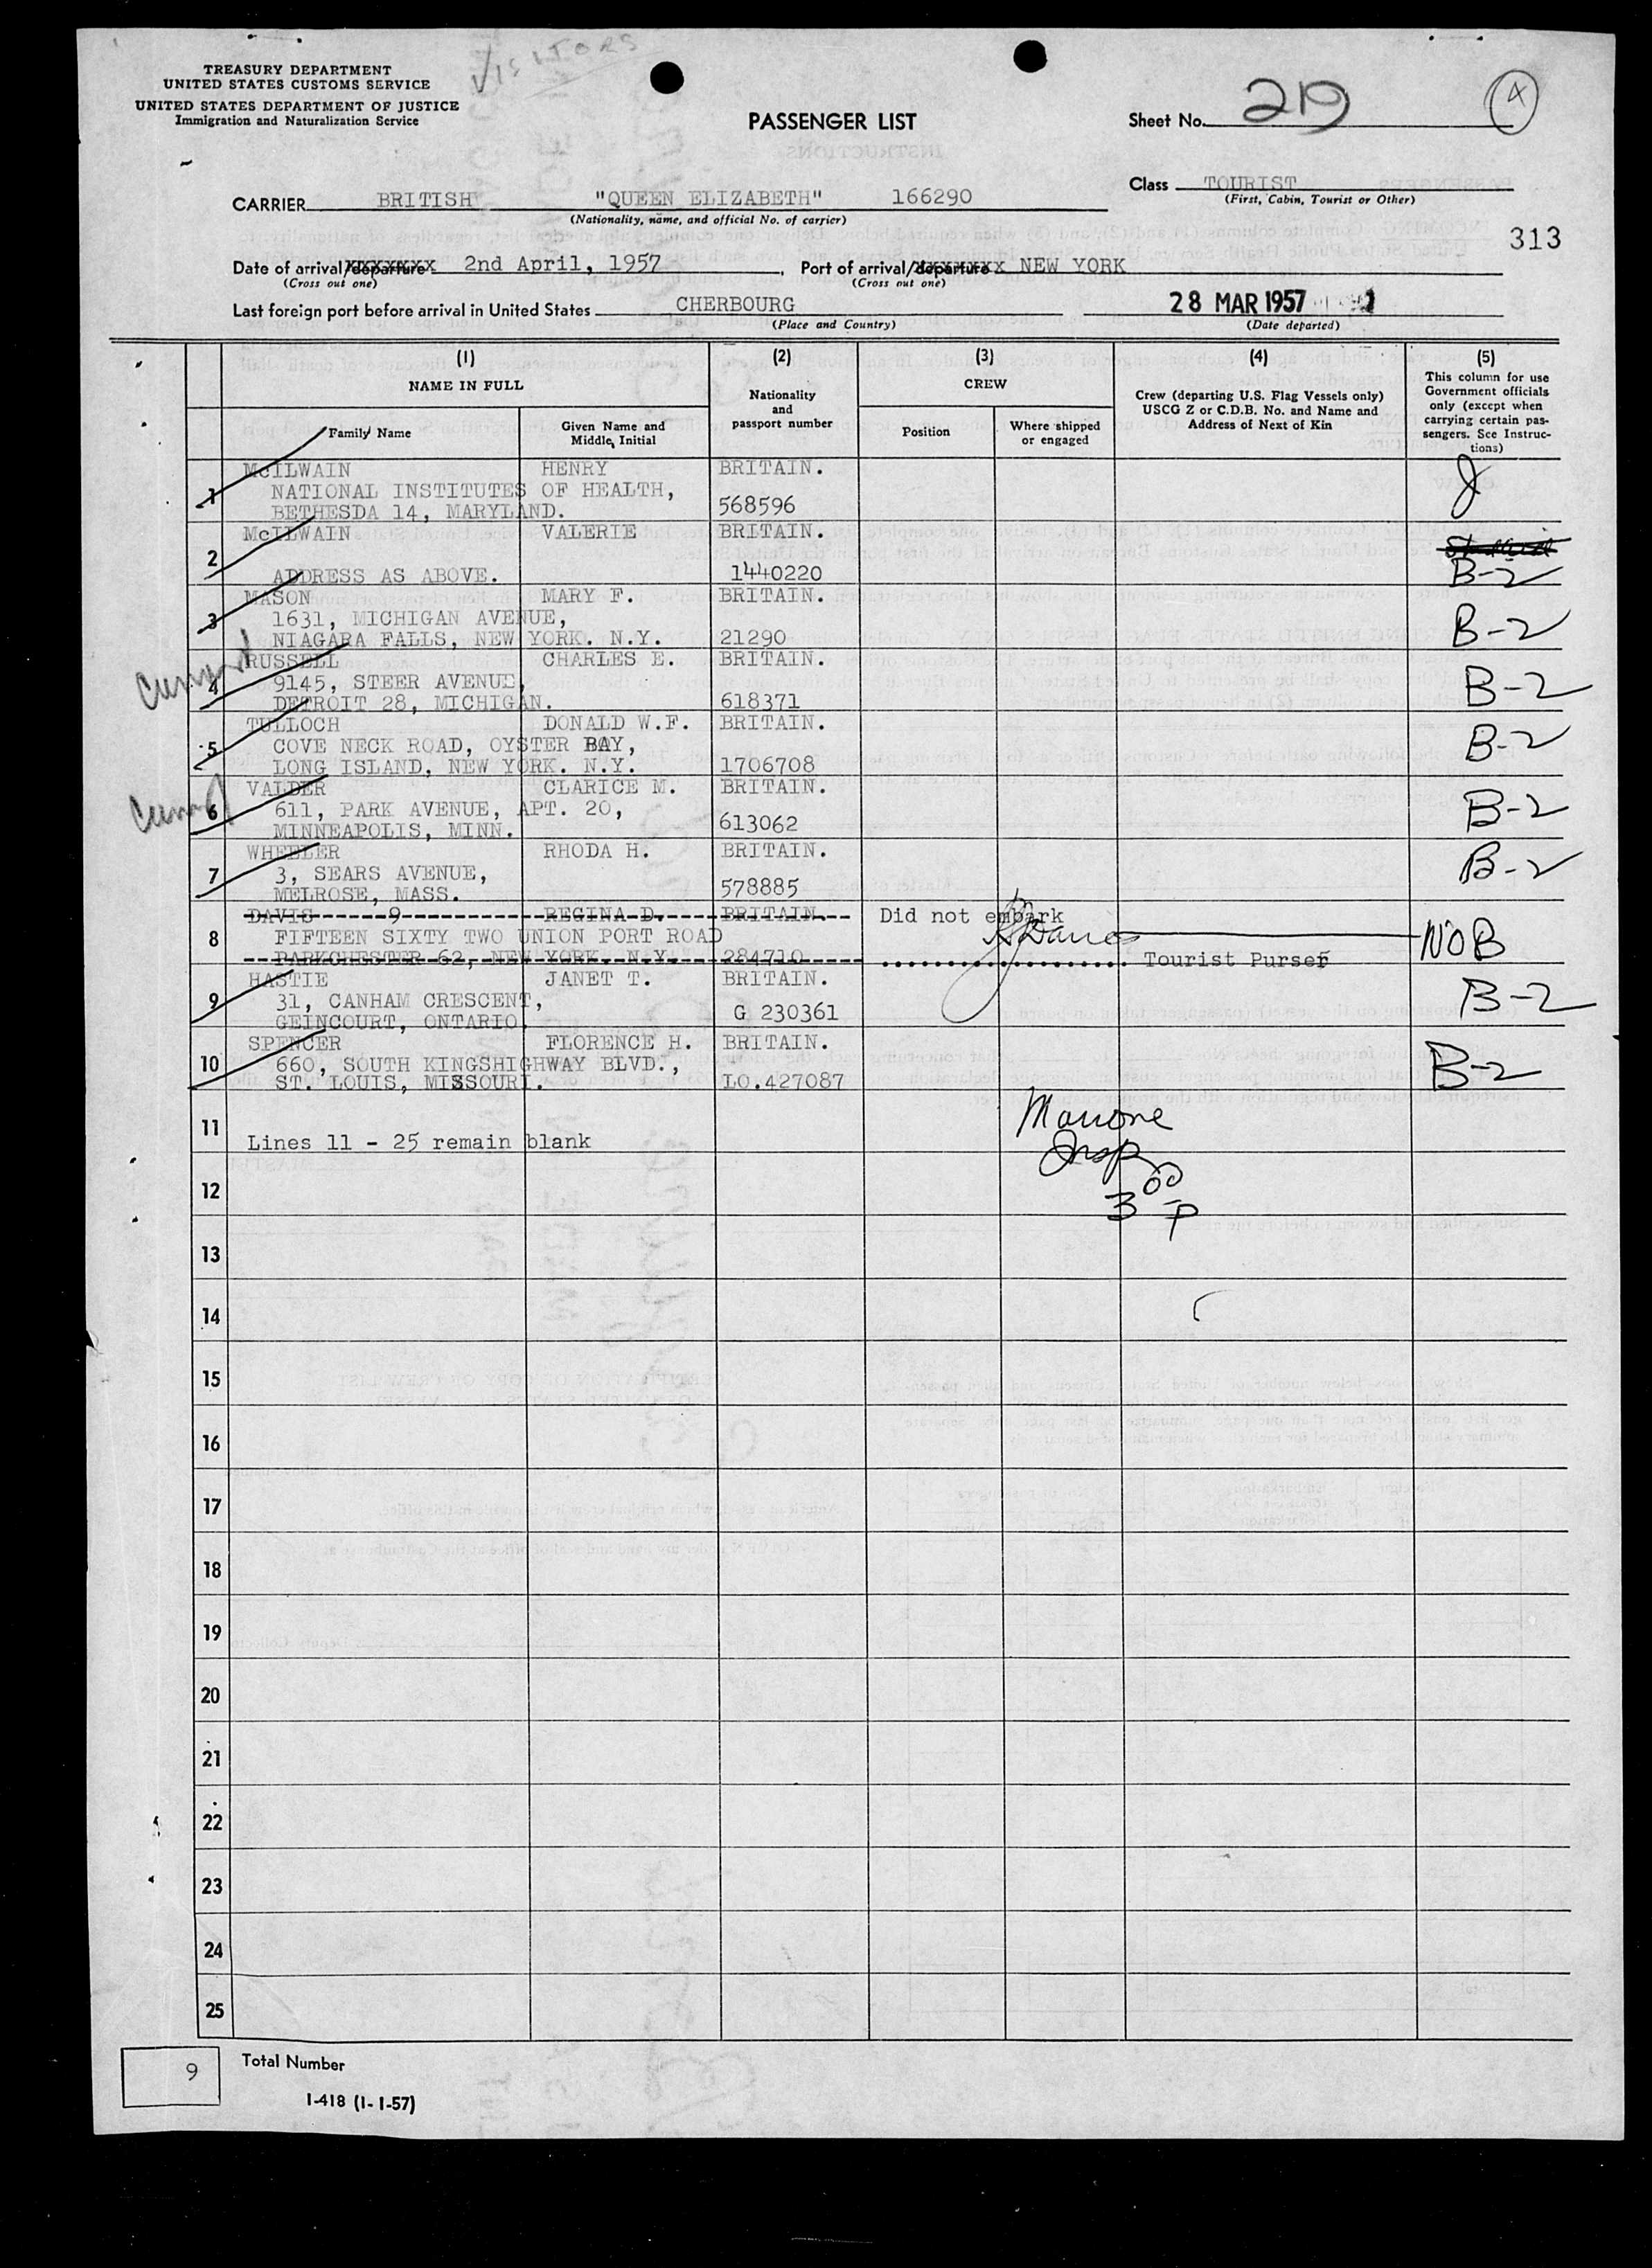 VISITORS
TREASURY DEPARTMENT
UNITED STATES CUSTOMS SERVICE
UNITED STATES DEPARTMENT OF JUSTICE
Immigration and Naturalization Service
PASSENGER LIST
Sheet No. 219 4
Class TOURIST
(First, Cabin, Tourist or Other)
CARRIER BRITISH "QUEEN ELIZABETH" 166290
(Nationality, name, and official No. of carrier)
313
Date of arrival/departure 2nd April, 1957, Port of arrival/departure NEW YORK
(Cross out one) (Cross out one)
Last foreign port before arrival in United States CHERBOURG 28 MAR 1957
(Place and Country) (Date departed)
(1) (2) (3) (4) (5)
NAME IN FULL
Family Name
Given Name and Middle Initial
Nationality and passport number
CREW
Position
Where shipped or engaged
Crew (departing U.S. Flag Vessels only)
USCG Z or C.D.B. No. and Name and
Address of Next of Kin
This column for use
Government officials
only (except when
carrying certain pas-
sengers. See Instruc-
tions)
1 McILWAIN HENRY BRITAIN. J
NATIONAL INSTITUTES OF HEALTH,
BETHESDA 14, MARYLAND. 568596
2 McILWAIN VALERIE BRITAIN.
ADDRESS AS ABOVE. 1440220 B-2
3 MASON MARY F. BRITAIN.
1631, MICHIGAN AVENUE, B-2
NIAGARA FALLS, NEW YORK. N.Y. 21290
4 RUSSELL CHARLES E. BRITAIN.
9145, STEER AVENUE, B-2
DETROIT 28, MICHIGAN. 618371
5 TULLOCH DONALD W.F. BRITAIN.
COVE NECK ROAD, OYSTER BAY, B-2
LONG ISLAND, NEW YORK. N.Y. 1706708
6 VALDER CLARICE M. BRITAIN.
611, PARK AVENUE, APT. 20, B-2
MINNEAPOLIS, MINN. 613062
7 WHEELER RHODA H. BRITAIN.
3, SEARS AVENUE, B-2
MELROSE, MASS. 578885
8 DAVIS 9 REGINA D. BRITAIN. Did not embark
FIFTEEN SIXTY TWO UNION PORT ROAD NOB
PARKCHESTER 62, NEW YORK. N.Y. 284710 Tourist Purser
9 HASTIE JANET T. BRITAIN.
31, CANHAM CRESCENT, B-2
GEINCOURT, ONTARIO. G 230361
10 SPENCER FLORENCE H. BRITAIN.
660, SOUTH KINGSHIGHWAY BLVD., B-2
ST. LOUIS, MISSOURI. LO.427087
11 Lines 11 - 25 remain blank
Insp
12
3 00 P
13
14
15
16
17
18
19
20
21
22
23
24
25
9 Total Number
I-418 (1-1-57)